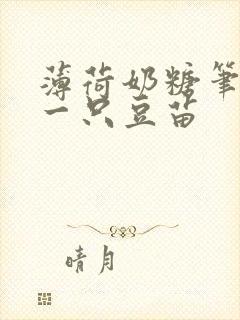 薄荷奶糖笔
一只豆苗
晴月